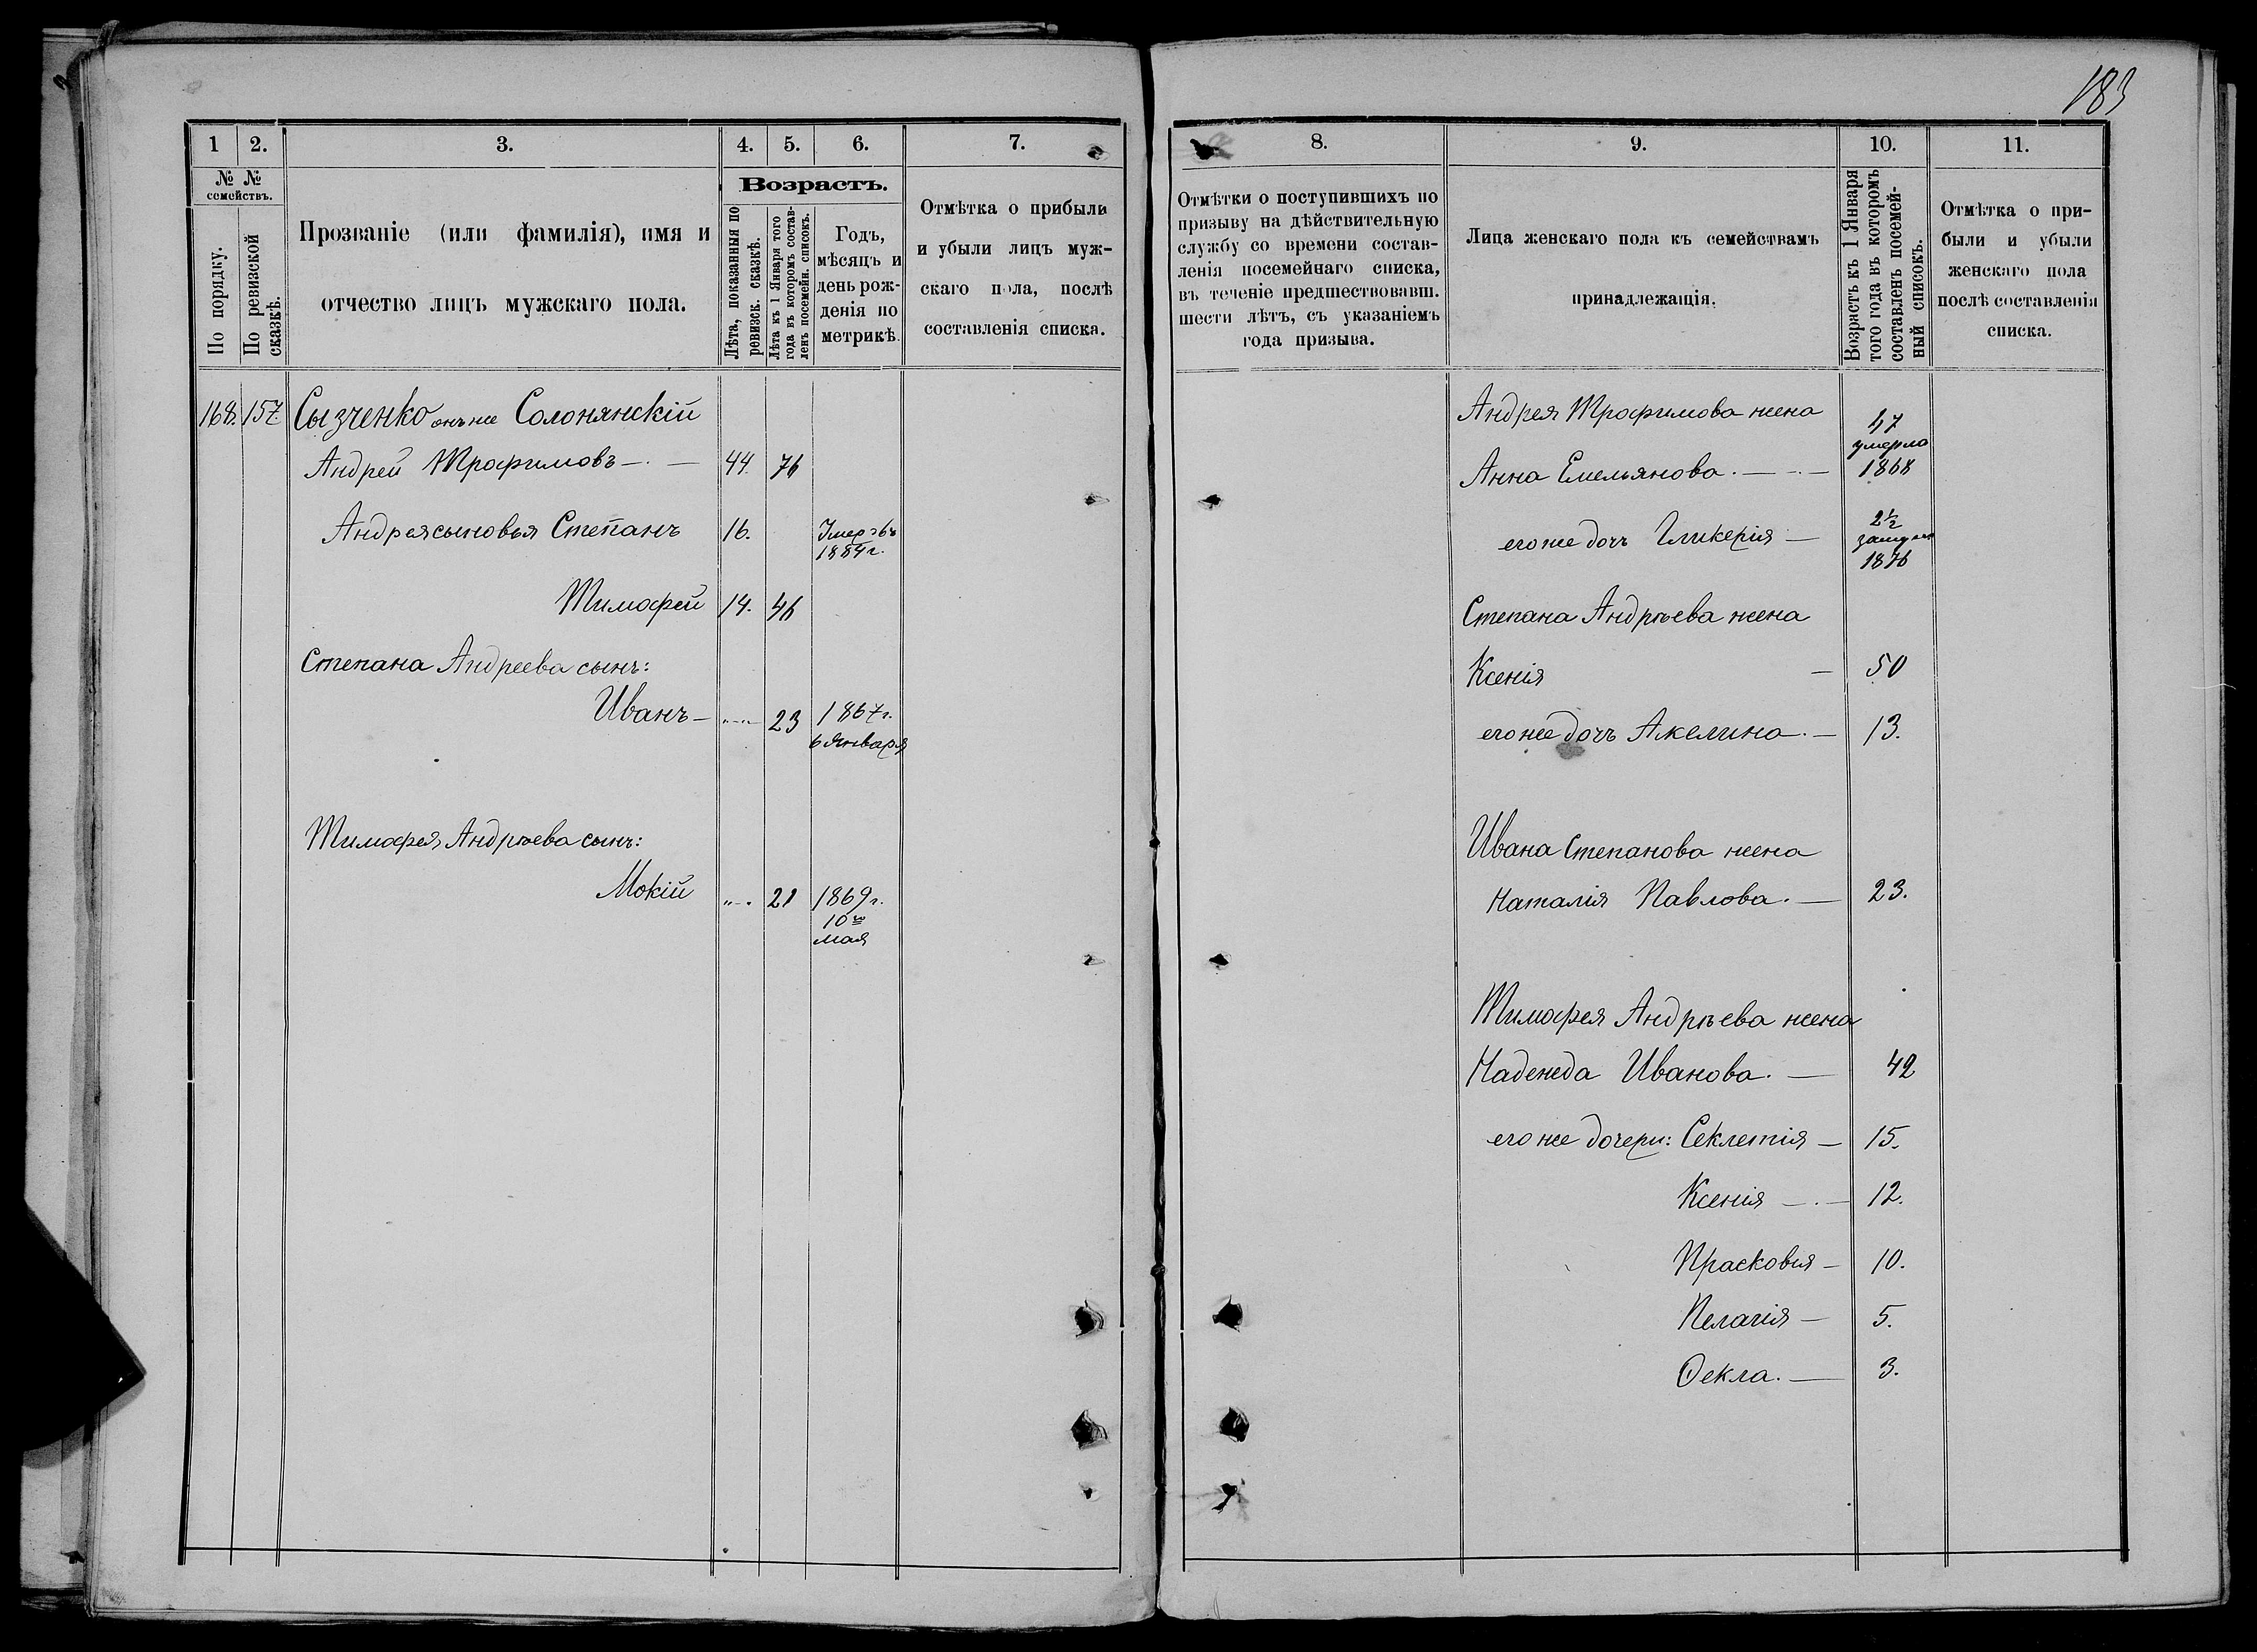 183
1 2. 3. 4. 5. 6. 7.
№ №
семействъ.
По порядку.
По ревизской
сказкѣ.
Прозваніе (или фамилія), имя и
отчество лицъ мужскаго пола.
Возрастъ.
Лѣта, показанныя по
ревизск. сказкѣ.
Лѣта къ 1 Января того
года въ которомъ состав-
ленъ посемейн. списокъ.
Годъ,
мѣсяцъ и
день рож-
денія по
метрикѣ.
Отмѣтка о прибыли
и убыли лицъ муж-
скаго пола, послѣ
составленія списка.
168. 157. Сызченко онъ же Солонянскій
Андрей Трофимовъ —.— 44. 76
Андрея сыновья Степанъ 16. Умеръ въ
1884 г.
Тимофей 14. 46
Степана Андреева сынъ:
Иванъ — „—„ 23 1867 г.
6 Января
Тимофея Андрѣева сынъ:
Мокій „—. 21 1869 г.
10го
мая
8. 9. 10. 11.
Отмѣтки о поступившихъ по
призыву на дѣйствительную
службу со времени состав-
ленія посемейнаго списка,
въ теченіе предшествовавш.
шести лѣтъ, съ указаніемъ
года призыва.
Лица женскаго пола къ семействамъ
принадлежащія.
Возрастъ къ 1 Января
того года въ которомъ
составленъ посемей-
ный списокъ.
Отмѣтка о при-
были и убыли
женскаго пола
послѣ составленія
списка.
Андрея Трофимова жена 47
умерла
Анна Емельянова. —.— 1868
2½
его же дочь Гликерія — замужъ
1876
Степана Андрѣева жена
Ксенія — 50
его же дочь Акелина. — 13.
Ивана Степанова жена
Наталія Павлова. — 23.
Тимофея Андрѣева жена
Надежда Иванова. — 42
его же дочери: Секлетія — 15.
Ксенія —.— 12.
Прасковія — 10.
Пелагія — 5.
Ѳекла. — 3.